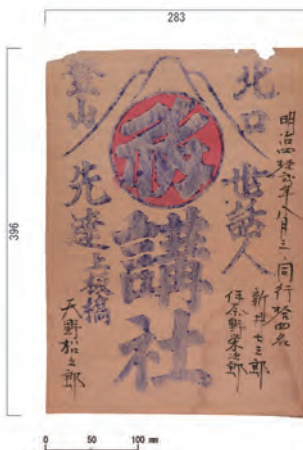 283
396
明治四拾弐年八月三日同行拾四名
新井七三郎
伊奈野栄次郎
北口
世話人
講社
登山
先達
上板橋
天野松之郎
0 50 100 mm